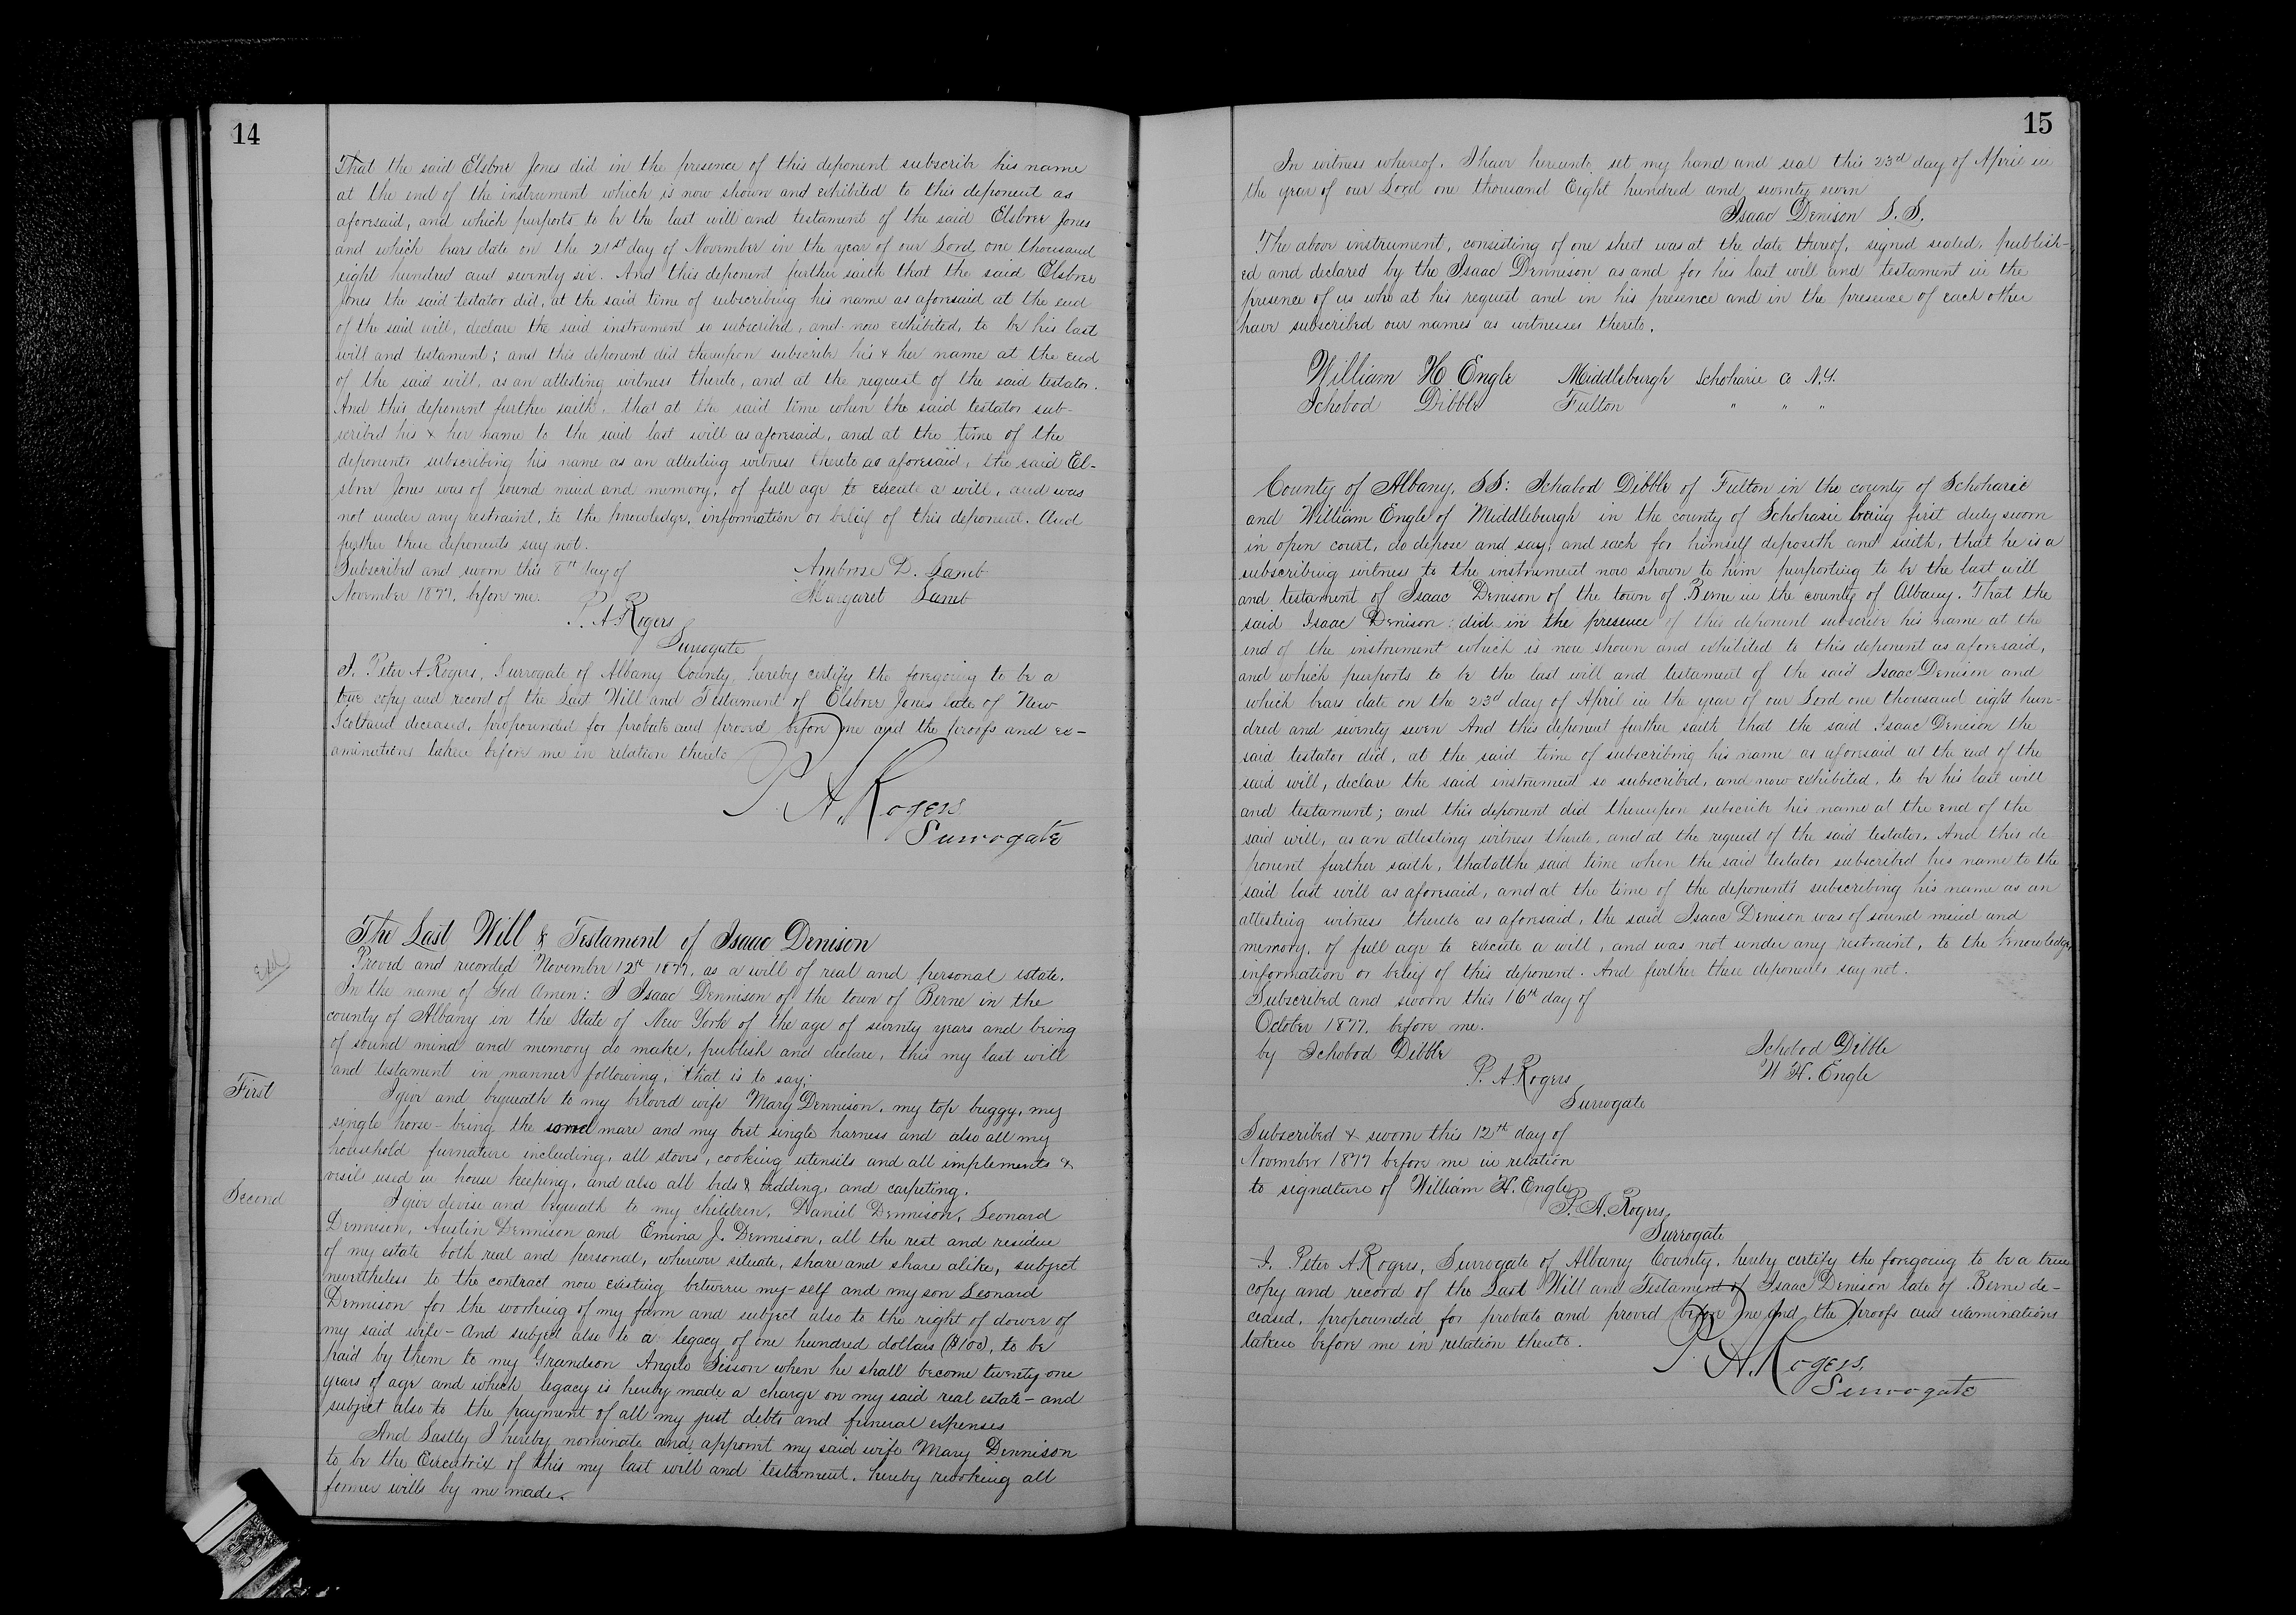 14
That the said Elsbree Jones did in the presence of this deponent subscribe his name
at the end of the instrument which is now shown and exhibited to this deponent as
aforesaid, and which purports to be the last will and testament of the said Elsbree Jones
and which bears date on the 21st day of November in the year of our Lord one thousand
eight hundred and seventy six. And this deponent further saith that the said Elsbree
Jones the said testator did, at the said time of subscribing his name as aforesaid at the end
of the said will, declare the said instrument so subscribed, and now exhibited, to be his last
will and testament; and this deponent did thereupon subscribe his & her name at the end
of the said will, as an attesting witness thereto, and at the request of the said testator.
And this deponent further saith, that at the said time when the said testator sub-
scribed his & her name to the said last will as aforesaid, and at the time of the
deponents subscribing his name as an attesting witness thereto as aforesaid, the said El-
sbree Jones was of sound mind and memory, of full age to execute a will, and was
not under any restraint, to the knowledge, information or belief of this deponent. And
further these deponents say not.
Subscribed and sworn this 8th day of Ambrose D. Lamb
November 1877, before me. Margaret Lamb
P. A Rogers
Surrogate
I, Peter A Rogers, Surrogate of Albany County, hereby certify the foregoing to be a
true copy and record of the Last Will and Testament of Elsbree Jones late of New
Scotland deceased, propounded for probate and proved before me and the proofs and ex-
aminations taken before me in relation thereto
P. A. Rogers
Surrogate
The Last Will & Testament of Isaac Denison
Proved and recorded November 12th 1877, as a will of real and personal estate.
In the name of God Amen: I Isaac Dennison of the town of Berne in the
county of Albany in the State of New York of the age of seventy years and being
of sound mind and memory do make, publish and declare, this my last will
and testament in manner following, that is to say;
First I give and bequeath to my beloved wife Mary Dennison, my top buggy, my
single horse - being the sorrel mare and my best single harness and also all my
household furnature including, all stoves, cooking utensils and all implements &
vesils used in house keeping, and also all beds & bedding, and carpeting.
Second I give devise and bequeath to my children, Daniel Dennison, Leonard
Dennison, Austin Dennison and Emiria J. Dennison, all the rest and residue
of my estate both real and personal, wherever situate, share and share alike, subject
nevertheless to the contract now existing between my-self and my son Leonard
Dennison for the working of my farm and subject also to the right of dower of
my said wife - And subject also to a legacy of one hundred dollars ($100), to be
paid by them to my Grandson Angelo Sisson when he shall become twenty one
years of age and which legacy is hereby made a charge on my said real estate - and
subject also to the payment of all my just debts and funeral expenses
And Lastly I hereby nominate and appoint my said wife Mary Dennison
to be the Executrix of this my last will and testament, hereby revoking all
former wills by me made.
15
In witness whereof, I have hereunto set my hand and seal this 23rd day of April in
the year of our Lord one thousand Eight hundred and seventy seven
Isaac Denison L.S.
The above instrument, consisting of one sheet was at the date thereof, signed sealed, publish-
ed and declared by the Isaac Dennison as and for his last will and testament in the
presence of us who at his request and in his presence and in the presence of each other
have subscribed our names as witnesses thereto.
William H Engle Middleburgh Schoharie Co N.Y.
Ichobod Dibble Fulton " " "
County of Albany, SS: Ichabod Dibble of Fulton in the county of Schoharie
and William Engle of Middleburgh in the county of Schoharie being first duly sworn
in open court, do depose and say; and each for himself deposeth and saith, that he is a
subscribing witness to the instrument now shown to him purporting to be the last will
and testament of Isaac Denison of the town of Berne in the county of Albany. That the
said Isaac Denison did in the presence of this deponent subscribe his name at the
end of the instrument which is now shown and exhibited to this deponent as aforesaid,
and which purports to be the last will and testament of the said Isaac Denison and
which bears date on the 23d day of April in the year of our Lord one thousand eight hun-
dred and seventy seven And this deponent further saith that the said Isaac Denison the
said testator did, at the said time of subscribing his name as aforesaid at the end of the
said will, declare the said instrument so subscribed, and now exhibited, to be his last will
and testament; and this deponent did thereupon subscribe his name at the end of the
said will, as an attesting witness thereto, and at the request of the said testator. And this de
ponent further saith, that at the said time when the said testator subscribed his name to the
said last will as aforesaid, and at the time of the deponents subscribing his name as an
attesting witness thereto as aforesaid, the said Isaac Denison was of sound mind and
memory, of full age to execute a will, and was not under any restraint, to the knowledge,
information or belief of this deponent. And further these deponents say not.
Subscribed and sworn this 16th day of
October 1877, before me.
by Ichobod Dibble Ichobod Dibble
P. A Rogers W H. Engle
Surrogate
Subscribed & sworn this 12th day of
November 1877 before me in relation
to signature of William H. Engle
P. A. Rogers
Surrogate
I, Peter A Rogers, Surrogate of Albany County, hereby certify the foregoing to be a true
copy and record of the Last Will and Testament of Isaac Denison late of Berne de-
ceased, propounded for probate and proved before me and the proofs and examinations
taken before me in relation thereto.
P. A. Rogers,
Surrogate